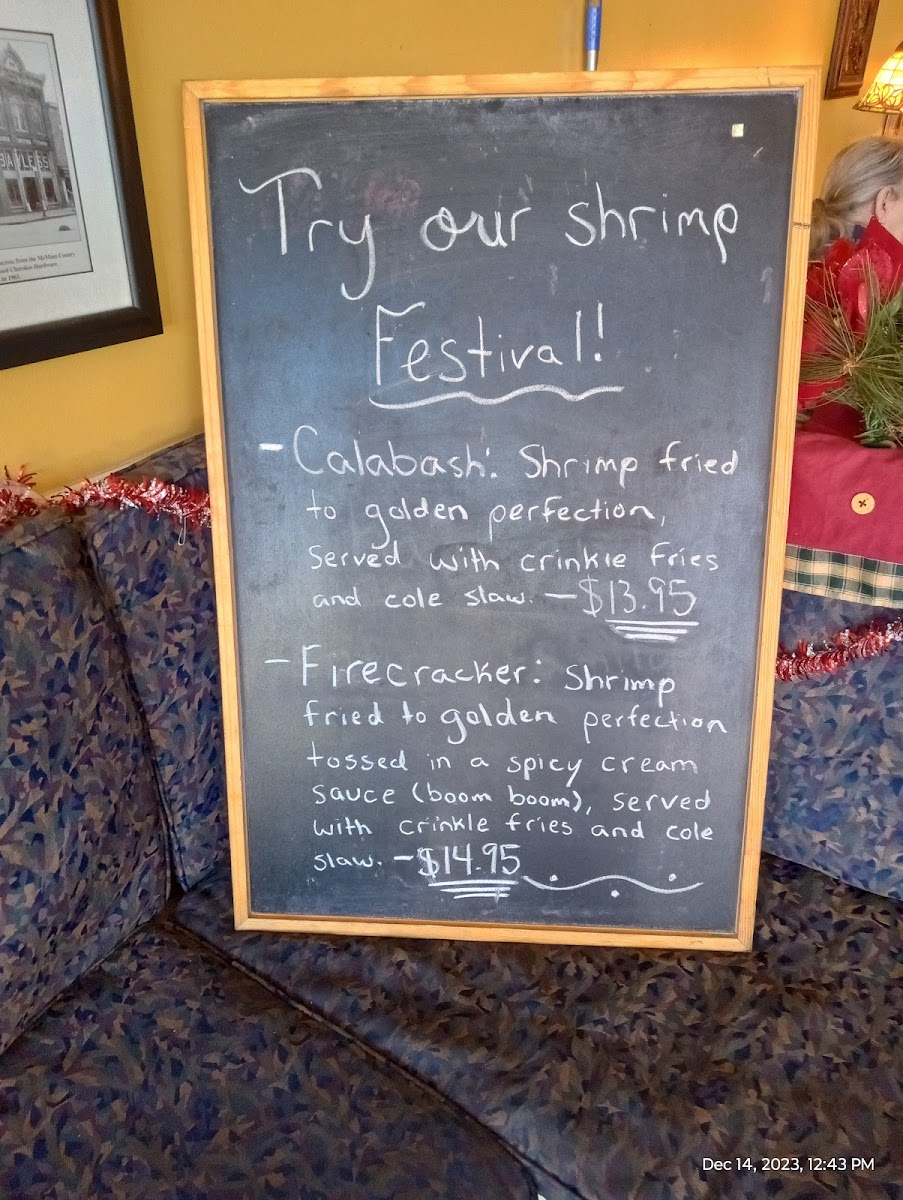 Try our shrimp
Festival!
- Calabash: Shrimp fried
to golden perfection,
served with crinkle fries
and cole slaw. - $13.95
- Firecracker: Shrimp
fried to golden perfection
tossed in a spicy cream
sauce (boom boom), served
with crinkle fries and cole
slaw. - $14.95
BAYLESS
from the McMinn County
Cherokee Hardware
in 1965.
Dec 14, 2023, 12:43 PM